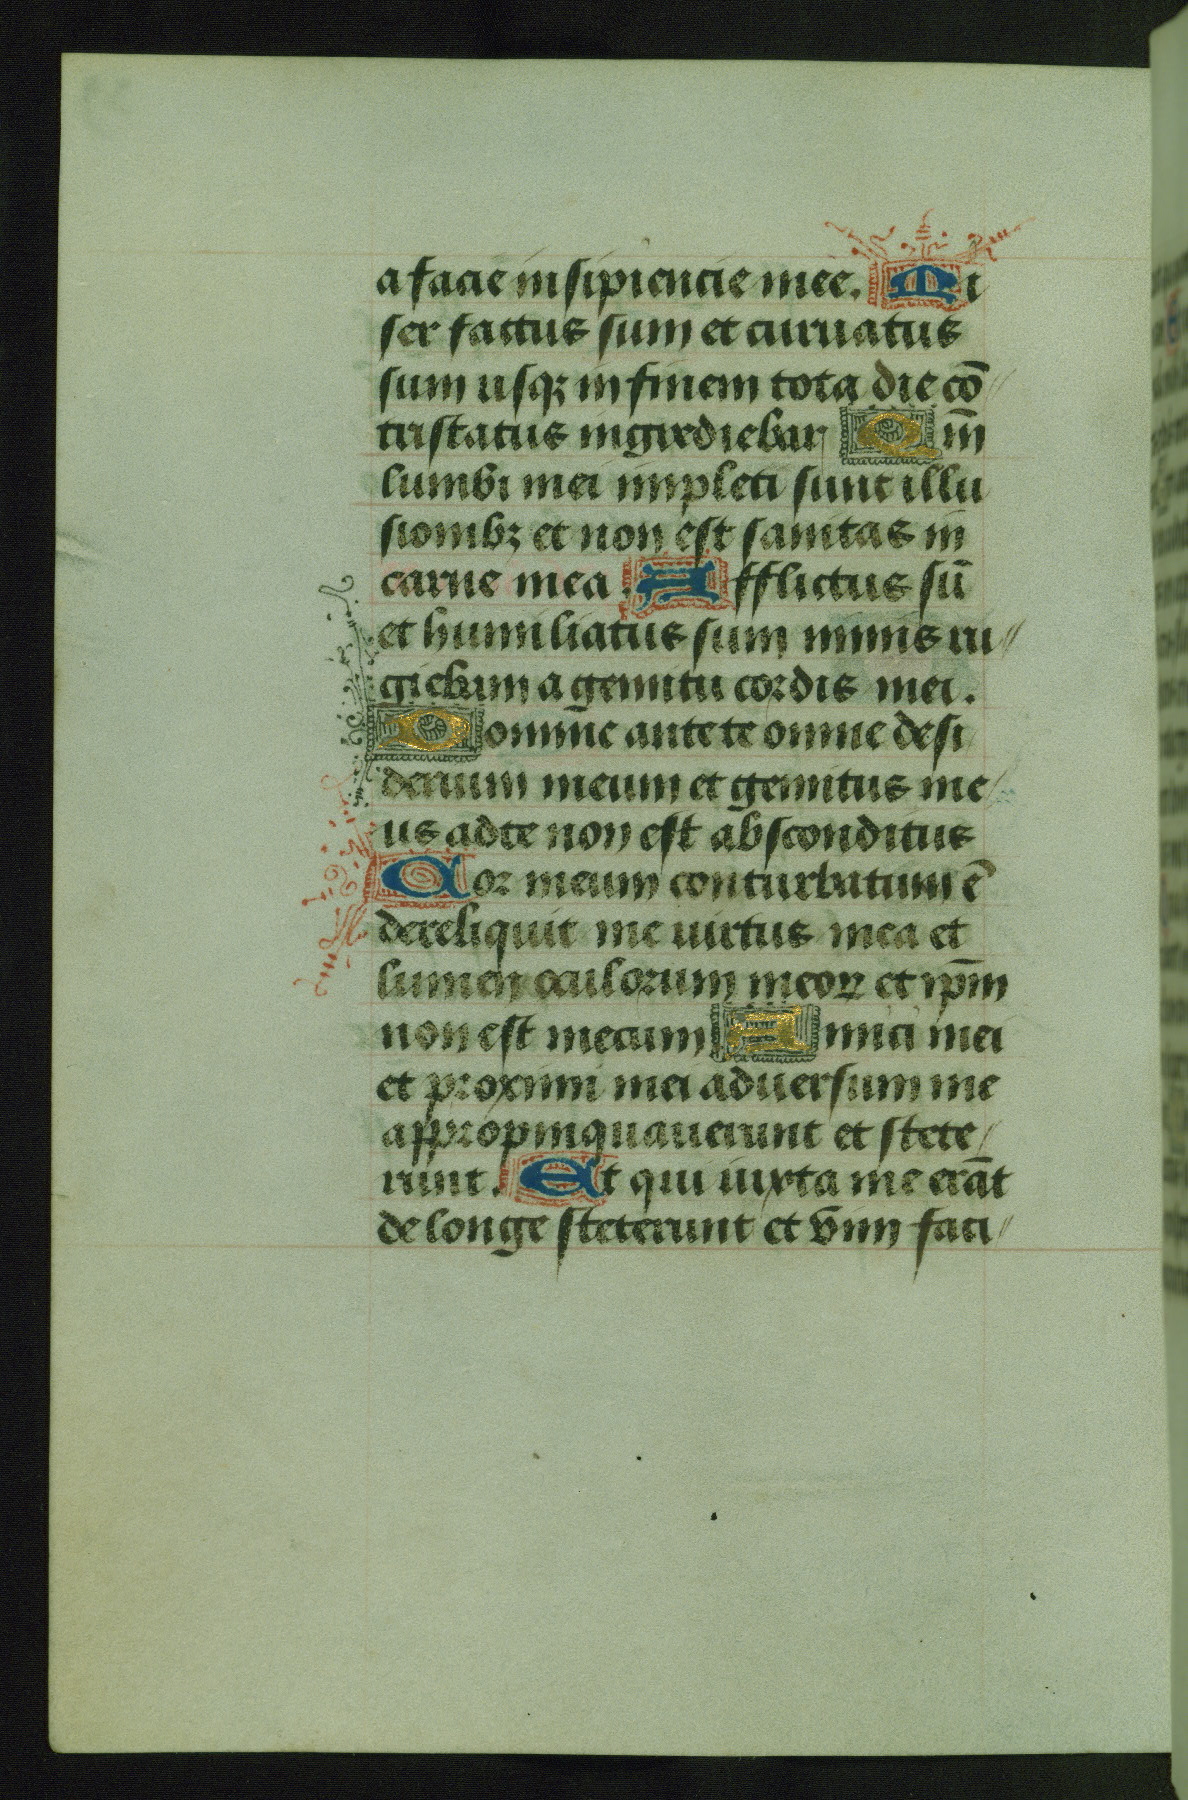 a facie insipiencie mee. Mi
ser factus sum et curuatus
sum usqꝫ in finem tota die cō
tristatus ingrediebar Qm̄
lumbi mei impleti sunt illu
sionibꝫ et non est sanitas in
carne mea. Afflictus sū
et humiliatus sum nimis ru
giebam a gemitu cordis mei.
Domine ante te omne desi
derium meum et gemitus me
us ad te non est absconditus
Cor meum conturbatum ē
dereliquit me uirtus mea et
lumen oculorum meoꝝ et ip̄m
non est mecum Amici mei
et proximi mei aduersum me
appropinquauerunt et stete
runt. Et qui iuxta me erāt
de longe steterunt et vim faci